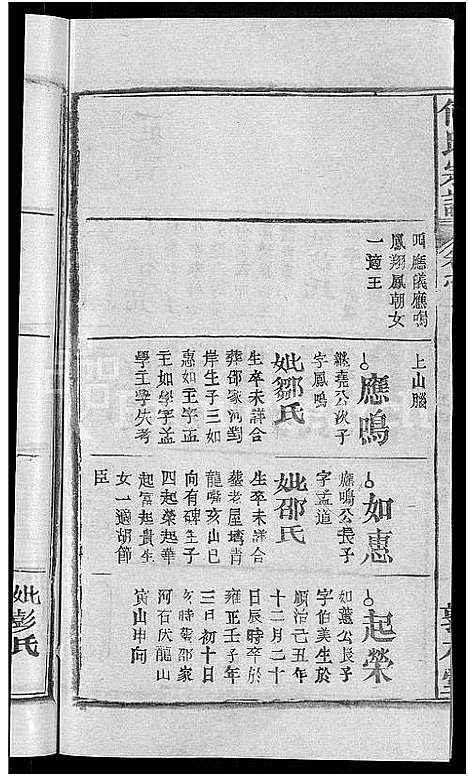 四應儀應鳴
鳳翔鳳朝女
一適王
上山腦
應鳴
繼堯公次子
字鳳鳴
妣鄒氏
生卒未詳合
葬邵家河對
岸生子三如
惠如王字孟
主如學字孟
學王學失考
如惠
應鳴公長子
字孟道
妣邵氏
生卒未詳合
葬老屋塆青
龍嘴亥山巳
向有碑生子
四起榮起華
起富起貴生
女一適胡節
臣
起榮
如蕙公長子
字伯美生於
順治己丑年
十二月二十
日辰時卒於
雍正壬子年
三日初十日
亥時葬邵家
河石伏龍山
寅山申向
妣彭氏
氏宗譜